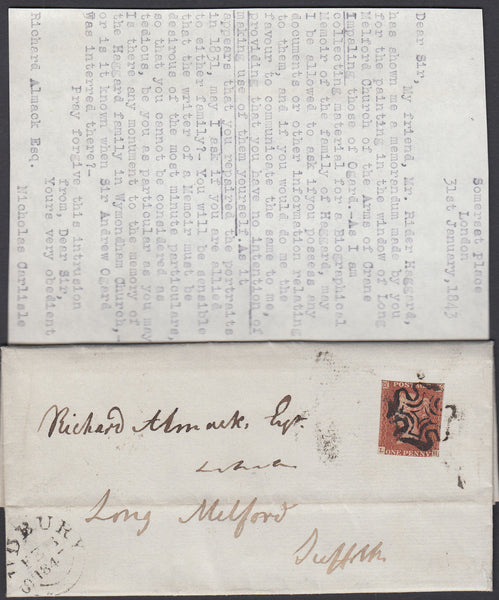 Somerset Place
London
31st January, 1843
Dear Sir, My friend, Mr. Rider Haggard,
has shown me a memorandum made by you
for the painting in the window of Long
Melford Church of the Arms of Crane
Impaling those of Ogard.-As I am
collecting material for a Biographical
Memoir of the family of Haggard, may
I be allowed to ask ifyou possess any
documents or other information relating
to them, and if you would do me the
favour to communicate the same to me,
providing that you have no intention of
making use of them yourself.As it
appears that you repaired the portraits
in 1831, may I ask if you are allied
to either family?- You will be sensible
that the writer of a Memoir must be
desirous of the most minute particulars,
so that you cannot be considered as
tedious, be you as particular as you may
Is there any monument to the memory of
the Haggard family in Wymondham Church,-
or is it known when Sir Andrew Ogard
was interred there?-
Pray forgive this intrusion
from, Dear Sir,
Yours very obedient
Nicholas Carlisle
Richard Almack Esq.
Richard Almack, Esqr.
Long Melford
Suffolk
POSTAGE
ONE PENNY
UDBURY
184